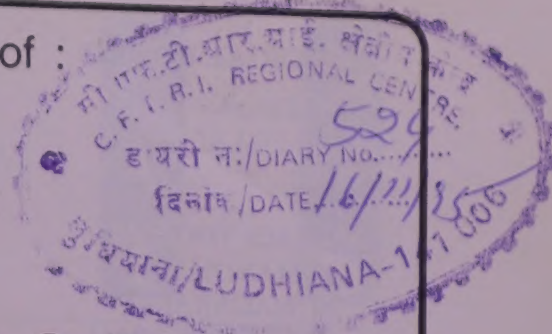 of :
सी. एफ.टी.आर.आई. क्षेत्रीय केन्द्र
C. F. T. R. I. REGIONAL CENTRE,
डायरी न:/DIARY NO.........
दिनांक/DATE 16/11/95
लुधियाना/LUDHIANA-141 006